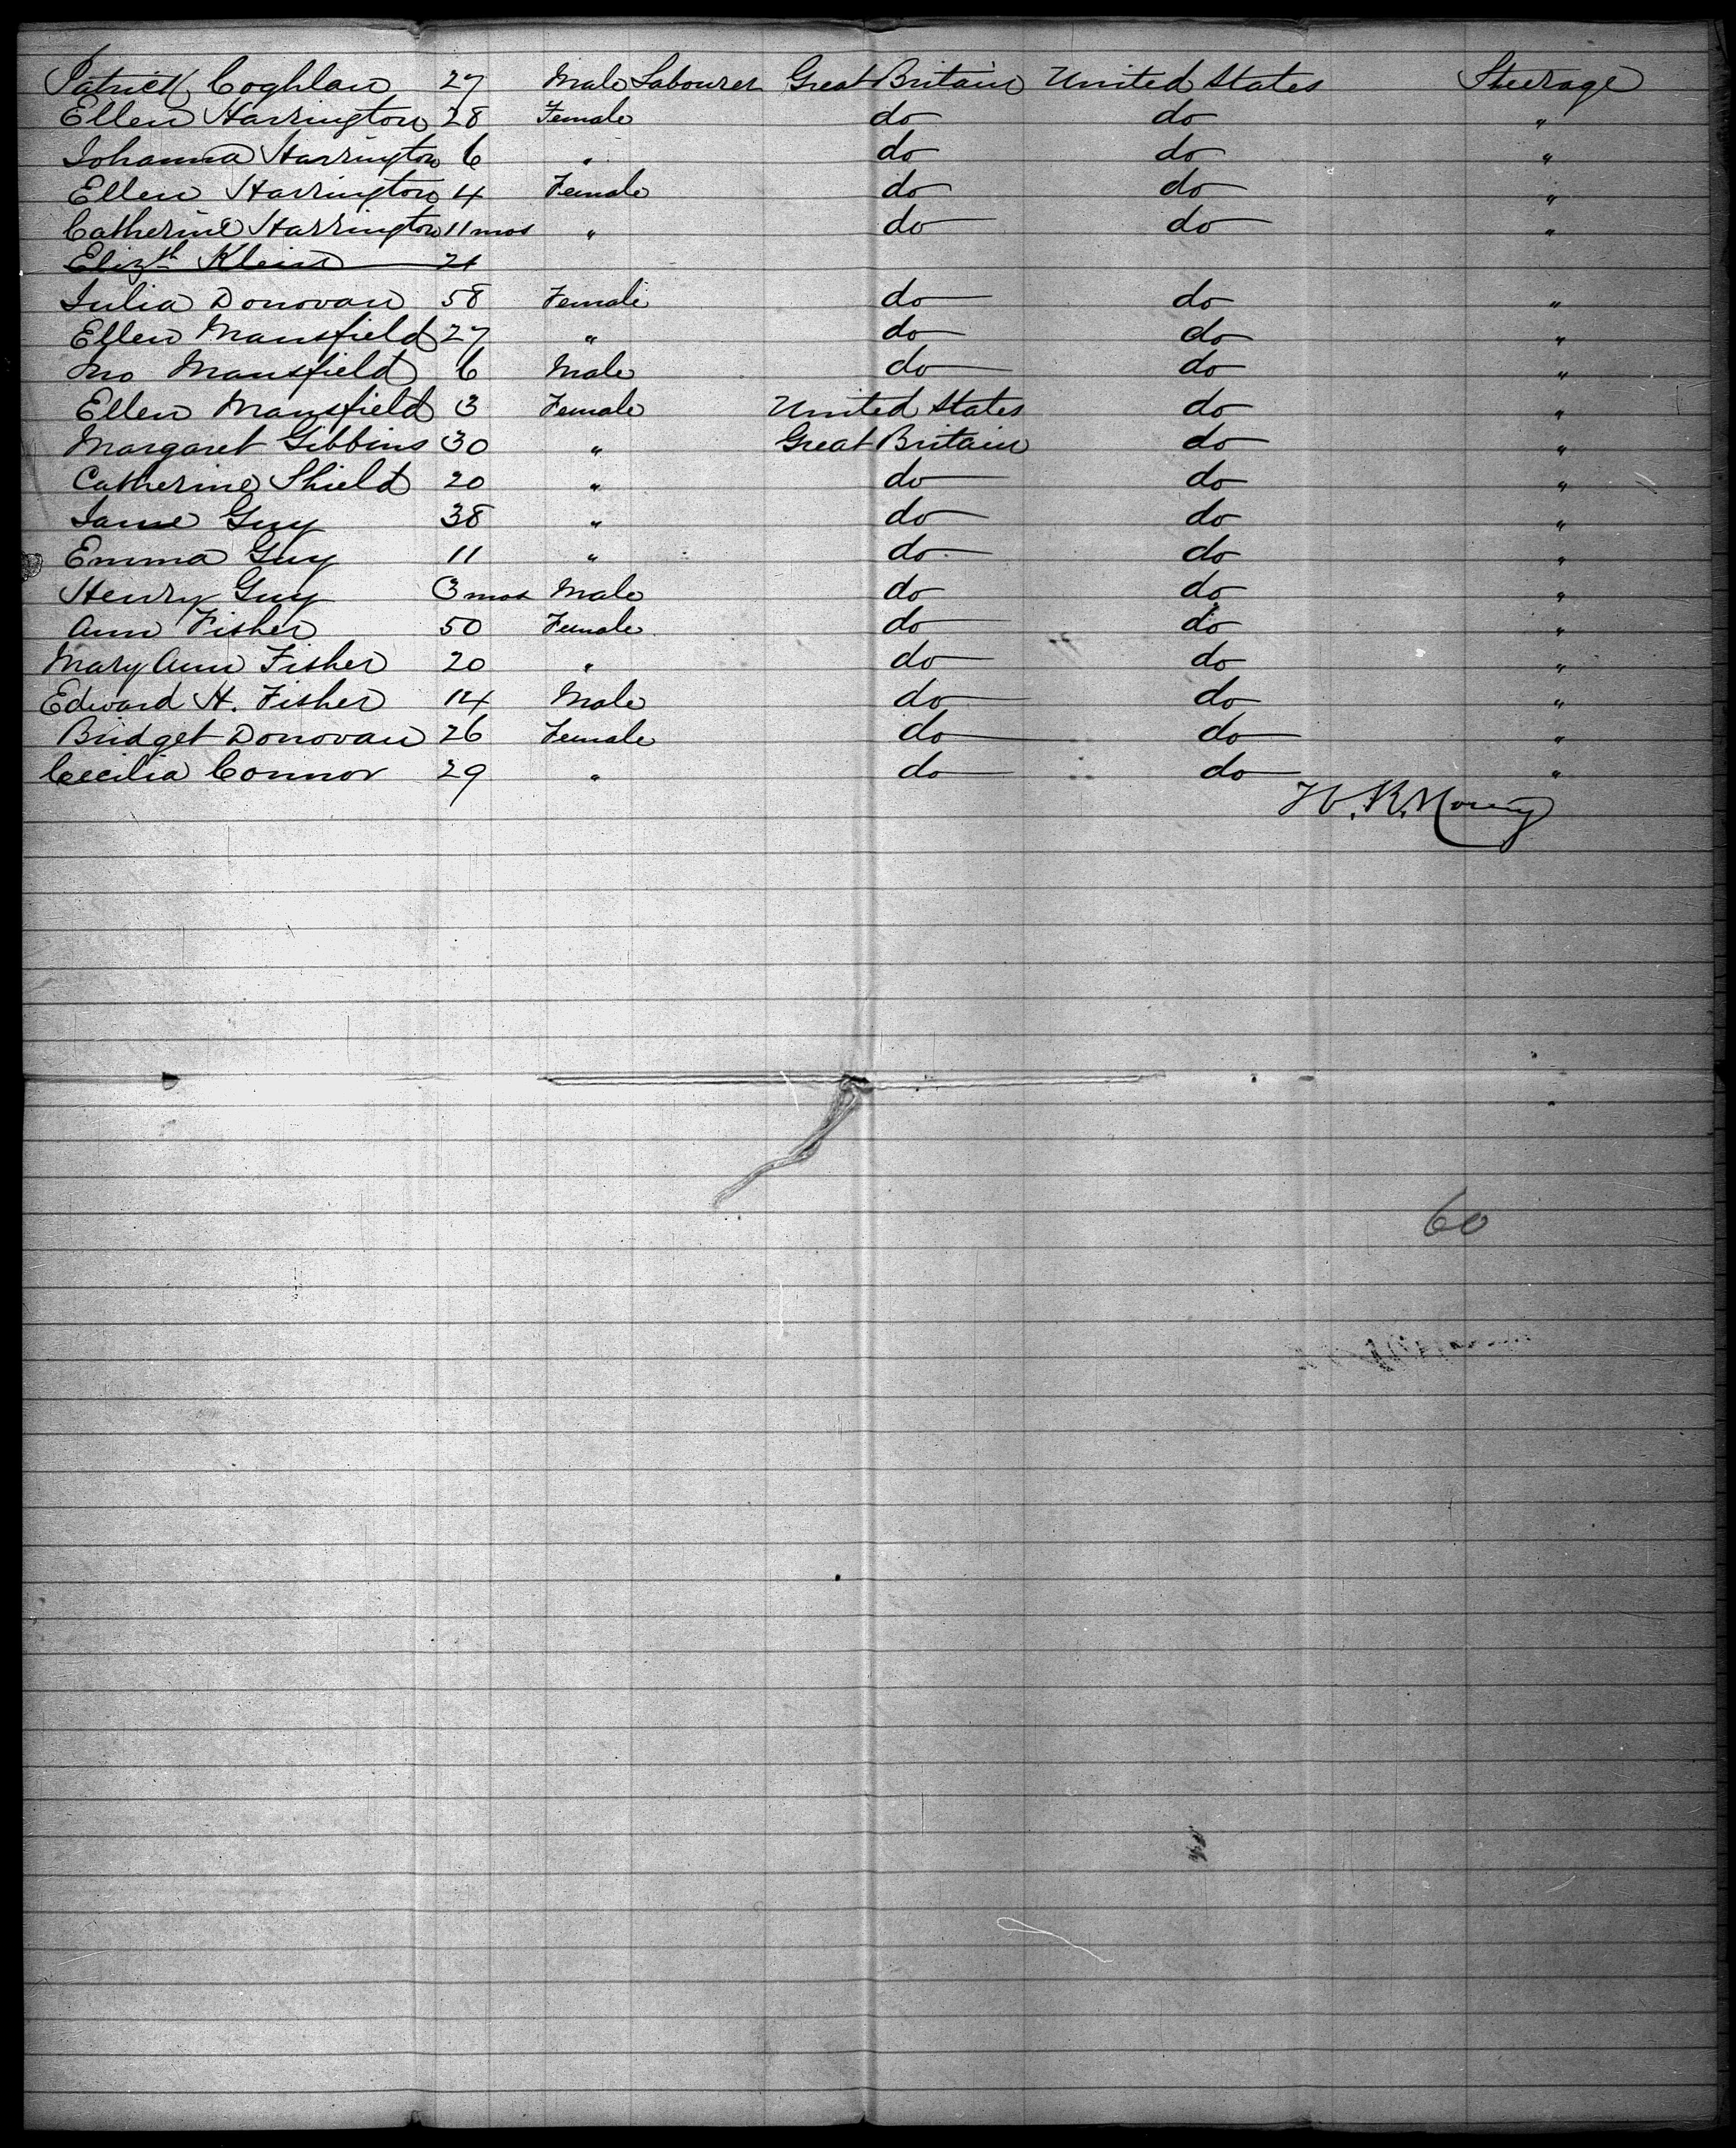 Patrick Coghlan 27 Male Labourer Great Britain United States Steerage
Ellen Harrington 28 Female do do "
Johanna Harrington 6 " do do "
Ellen Harrington 4 Female do do "
Catherine Harrington 11 mos " do do "
Elizth Klein 21
Julia Donovan 58 Female do do "
Ellen Mansfield 27 " do do "
Jno Mansfield 6 Male do do "
Ellen Mansfield 3 Female United States do "
Margaret Gibbins 30 " Great Britain do "
Catherine Shield 20 " do do "
Jane Guy 38 " do do "
Emma Guy 11 " do do "
Henry Guy 3 mos Male do do "
Ann Fisher 50 Female do do "
Mary Ann Fisher 20 " do do "
Edward H. Fisher 14 Male do do "
Bridget Donovan 26 Female do do "
Cecilia Connor 29 " do do "
60